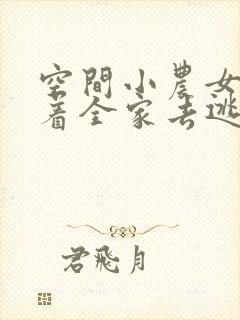 空間小農女
着全家去逃
君飛月